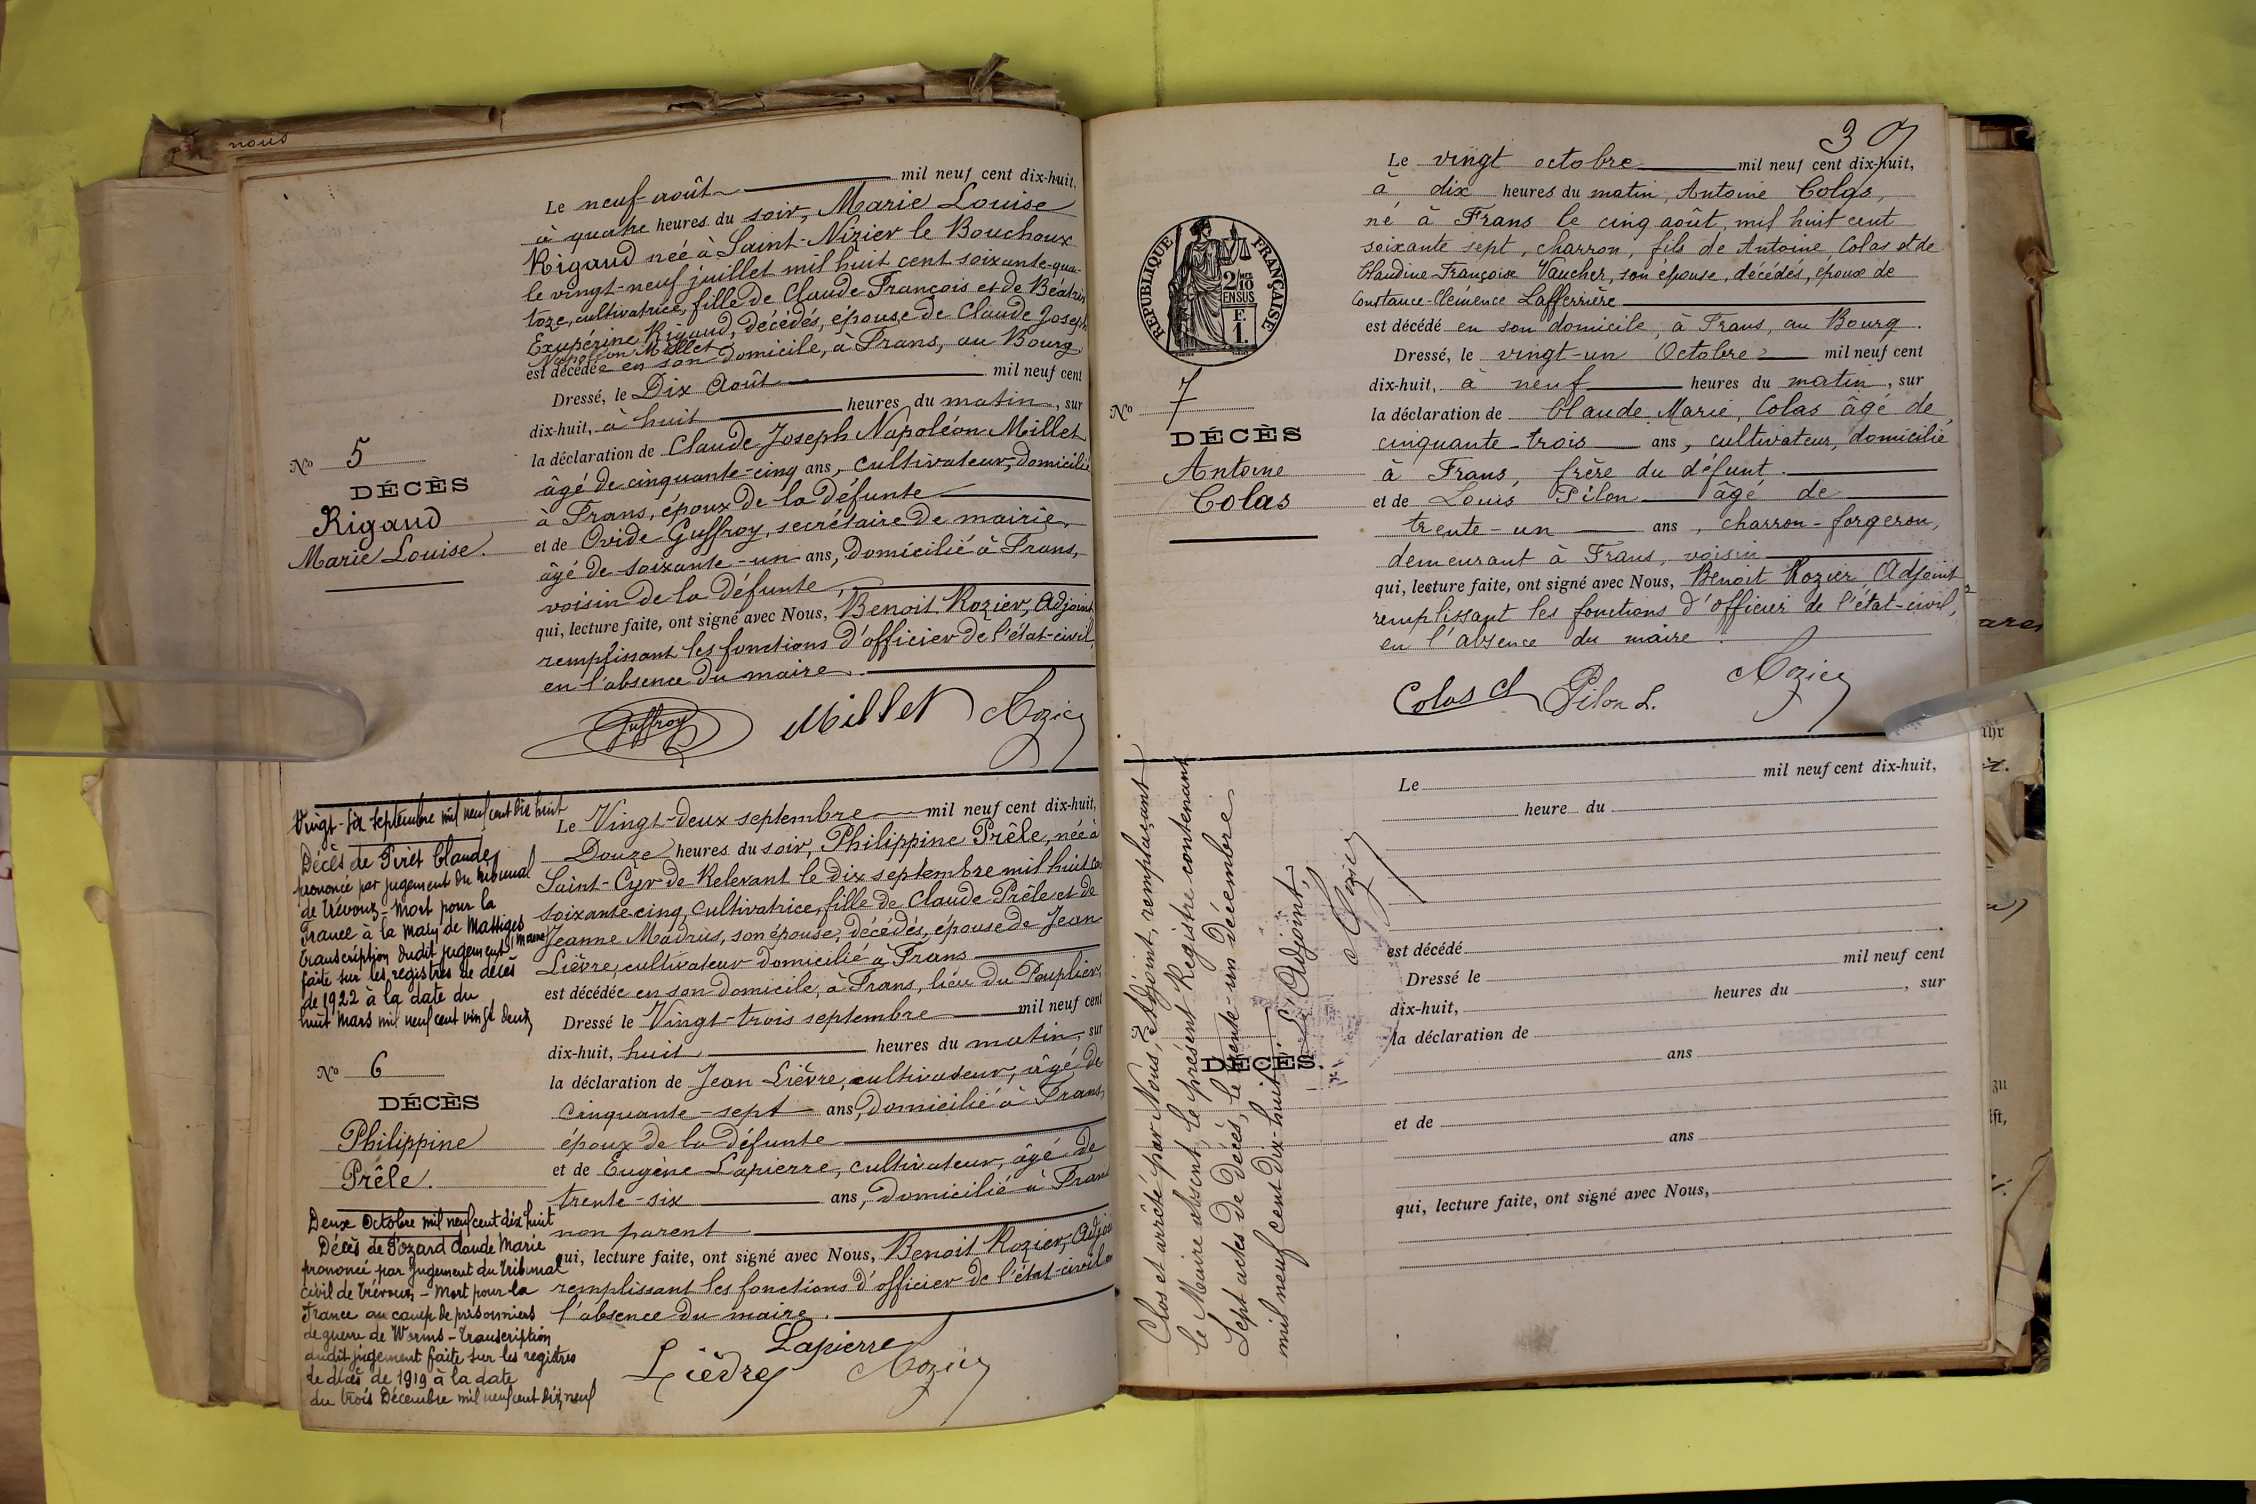 nous
Le neuf août mil neuf cent dix-huit,
à quatre heures du soir, Marie Louise
Rigaud née à Saint-Nizier le Bouchoux
le vingt-neuf juillet mil huit cent soixante-qua-
torze, cultivatrice, fille de Claude François et de Béatrix
Exupérine Rigaud, décédés, épouse de Claude Joseph
Napoléon Millet
est décédée en son domicile, à Frans, au Bourg
Dressé, le Dix Août mil neuf cent
dix-huit, à huit heures du matin, sur
la déclaration de Claude Joseph Napoléon Millet
âgé de cinquante-cinq ans, cultivateur, domicilié
à Frans, époux de la défunte
et de Ovide Guffroy, secrétaire de mairie,
âgé de soixante-un ans, domicilié à Frans,
voisin de la défunte,
qui, lecture faite, ont signé avec Nous, Benoit Rozier, Adjoint
remplissant les fonctions d'officier de l'état-civil,
en l'absence du maire.
Guffroy Millet Rozier
No 5
DÉCÈS
Rigaud
Marie Louise.
Vingt-six septembre mil neuf cent dix huit
Décès de Piret Claude
prononcé par jugement du tribunal
de Trévoux - Mort pour la
France à la Main de Massiges
Marne
transcription dudit jugement
faite sur les registres de décès
de 1922 à la date du
huit Mars mil neuf cent vingt deux
Le Vingt-deux septembre mil neuf cent dix-huit,
Douze heures du soir, Philippine Prêle, née à
Saint-Cyr de Relevant le dix septembre mil huit cent
soixante-cinq, cultivatrice, fille de Claude Prêle et de
Jeanne Madrus, son épouse, décédés, épouse de Jean
Lièvre, cultivateur domicilié à Frans
est décédée en son domicile, à Frans, lieu du Peuplier
Dressé le Vingt-trois septembre mil neuf cent
dix-huit, huit heures du matin, sur
la déclaration de Jean Lièvre, cultivateur, âgé de
cinquante-sept ans, domicilié à Frans,
époux de la défunte
et de Eugène Lapierre, cultivateur, âgé de
trente-six ans, domicilié à Frans
non parent
qui, lecture faite, ont signé avec Nous, Benoit Rozier, Adjoint
remplissant les fonctions d'officier de l'état-civil en
l'absence du maire.
Lapierre
Lièvre Rozier
No 6
DÉCÈS
Philippine
Prêle.
Deux Octobre mil neuf cent dix huit
Décès de Pozard Claude Marie
prononcé par jugement du tribunal
civil de Trévoux - Mort pour la
France au camp de prisonniers
de guerre de Worms - Transcription
dudit jugement faite sur les registres
de décès de 1919 à la date
du trois Décembre mil neuf cent dix neuf
3
Le vingt octobre mil neuf cent dix-huit,
à dix heures du matin, Antoine Colas,
né à Frans le cinq août mil huit cent
soixante sept, charron, fils de Antoine Colas et de
Claudine-Françoise Vaucher, son épouse, décédés, époux de
Constance-Clémence Lafferrière
est décédé en son domicile, à Frans, au Bourg.
Dressé, le vingt-un Octobre mil neuf cent
dix-huit, à neuf heures du matin, sur
la déclaration de Claude Marie Colas âgé de
cinquante-trois ans, cultivateur, domicilié
à Frans, frère du défunt.
et de Louis Pilon âgé de
trente-un ans, charron-forgeron,
demeurant à Frans, voisin
qui, lecture faite, ont signé avec Nous, Benoit Rozier Adjoint
remplissant les fonctions d'officier de l'état-civil,
en l'absence du maire.
Colas Cl Pilon L. Rozier
RÉPUBLIQUE FRANÇAISE
2/10
EN SUS
F.
1.
No 7
DÉCÈS
Antoine
Colas
Clos et arrêté par Nous, Adjoint, remplaçant
le Maire absent, le présent Registre contenant
Sept actes de Décès, le trente-un décembre
mil neuf cent dix-huit. L'Adjoint,
Rozier
DÉCÈS.
Le mil neuf cent dix-huit,
heure du
est décédé
Dressé le mil neuf cent
dix-huit, heures du , sur
la déclaration de
ans
et de
ans
qui, lecture faite, ont signé avec Nous,